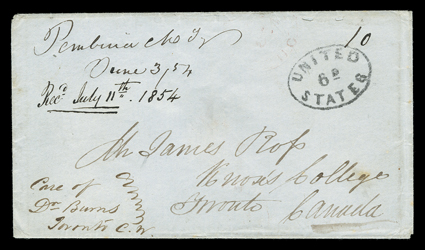 Pembina M. T.
June 3, 54
Recd. July 11th. 1854
10
UNITED
6D
STATES
Mr James Ross
Knox's College
Toronto Canada
Care of
Dr Burns
Toronto C.W.